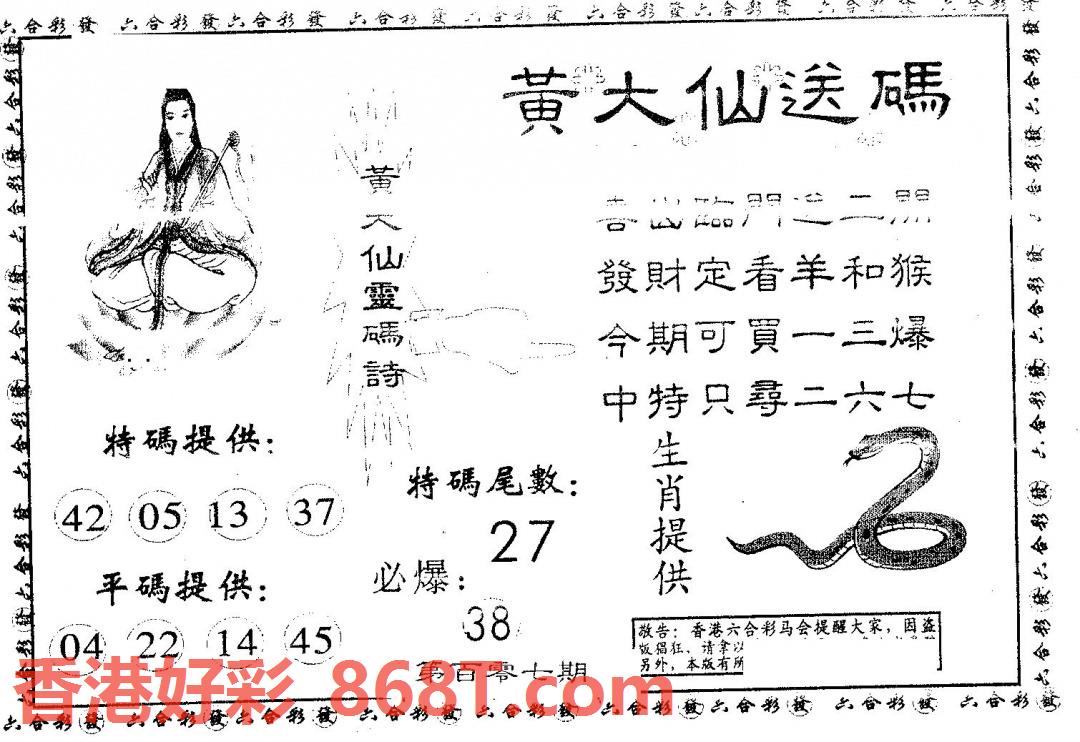 六合彩發 六合彩發 六合彩發 六合彩發 六合彩發 六合彩發 六合彩發 六合彩發
黃大仙送碼
黃大仙靈碼詩
臨門送二開
發財定看羊和猴
今期可買一三爆
中特只尋二六七
生肖提供
特碼提供:
42 05 13 37
特碼尾數:
27
平碼提供:
04 22 14 45
必爆:
38
第百零七期
敬告：香港六合彩马会提醒大家，因盗
版倡狂、请拿以
另外，本版有所
香港好彩 868T.com
六合彩發 六合彩發 六合彩發 六合彩發 六合彩發 六合彩發 六合彩發 六合彩發 六合彩發